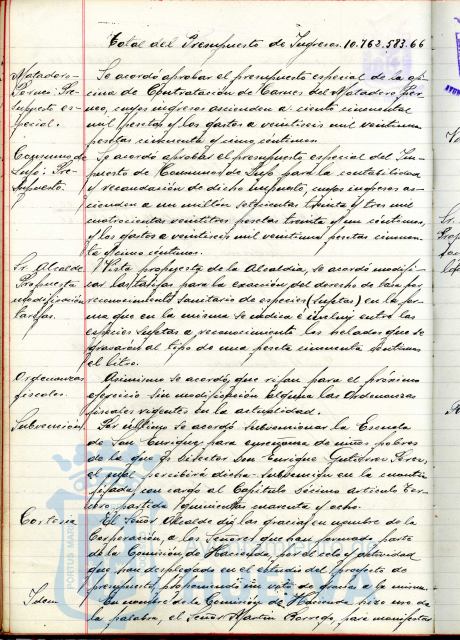 Total del Presupuesto de Ingresos. 10.762.583.66
Matadero-
Carnes: Pre-
supuesto es-
pecial.
Se acordó aprobar el presupuesto especial de la ofi-
cina de Contratación de Carnes del Matadero
cuyos ingresos ascienden a ciento cincuenta
mil pesetas y los gastos a veintiseis mil veintiuna
pesetas cincuenta y cinco céntimos.
Consumo de
Lujo: Pre-
supuesto.
Se acordó aprobar el presupuesto especial del Im-
puesto de Consumos de Lujo para la contabilidad
y recaudación de dicho impuesto, cuyos ingresos as-
cienden a un millón setecientas treinta y tres mil
cuatrocientas veintitres pesetas treinta y un céntimos,
y los gastos a veintiseis mil veintiuna pesetas cincuen-
ta y cinco céntimos.
Sr. Alcalde
Propuesta
modificación
tarifas.
Vista propuesta de la Alcaldía, se acordó modifi-
car las tarifas para la exacción del derecho de tasa por
reconocimiento sanitario de especies (sujetas) en la for-
ma que en la misma se indica é incluir entre las
especies sujetas a reconocimiento los helados que se
gravarán al tipo de una peseta cincuenta céntimos
el litro.
Ordenanzas
fiscales.
Asimismo se acordó que rijan para el próximo
ejercicio sin modificación alguna las Ordenanzas
fiscales vigentes en la actualidad.
Subvención
Por último se acordó subvencionar la Escuela
de San Enrique para enseñanza de niños pobres
de la que es Director Don Enrique Gutiérrez
el cual percibirá dicha subvención en la cuantía
fijada, con cargo al Capítulo Décimo artículo Ter-
cero partida quinientas cuarenta y ocho.
Cortesía
El Señor Alcalde dió las gracias en nombre de la
Corporación, a los Señores que han formado parte
de la Comisión de Hacienda, por el celo y actividad
que han desplegado en el estudio del proyecto de
presupuesto, proponiendo un voto de gracias a la misma.
Idem
En nombre de la Comisión de Hacienda hizo uso de
la palabra, el Señor Martín Borrego, para manifestar
PORTUS MARIS
Ayuntamiento de
HUELVA